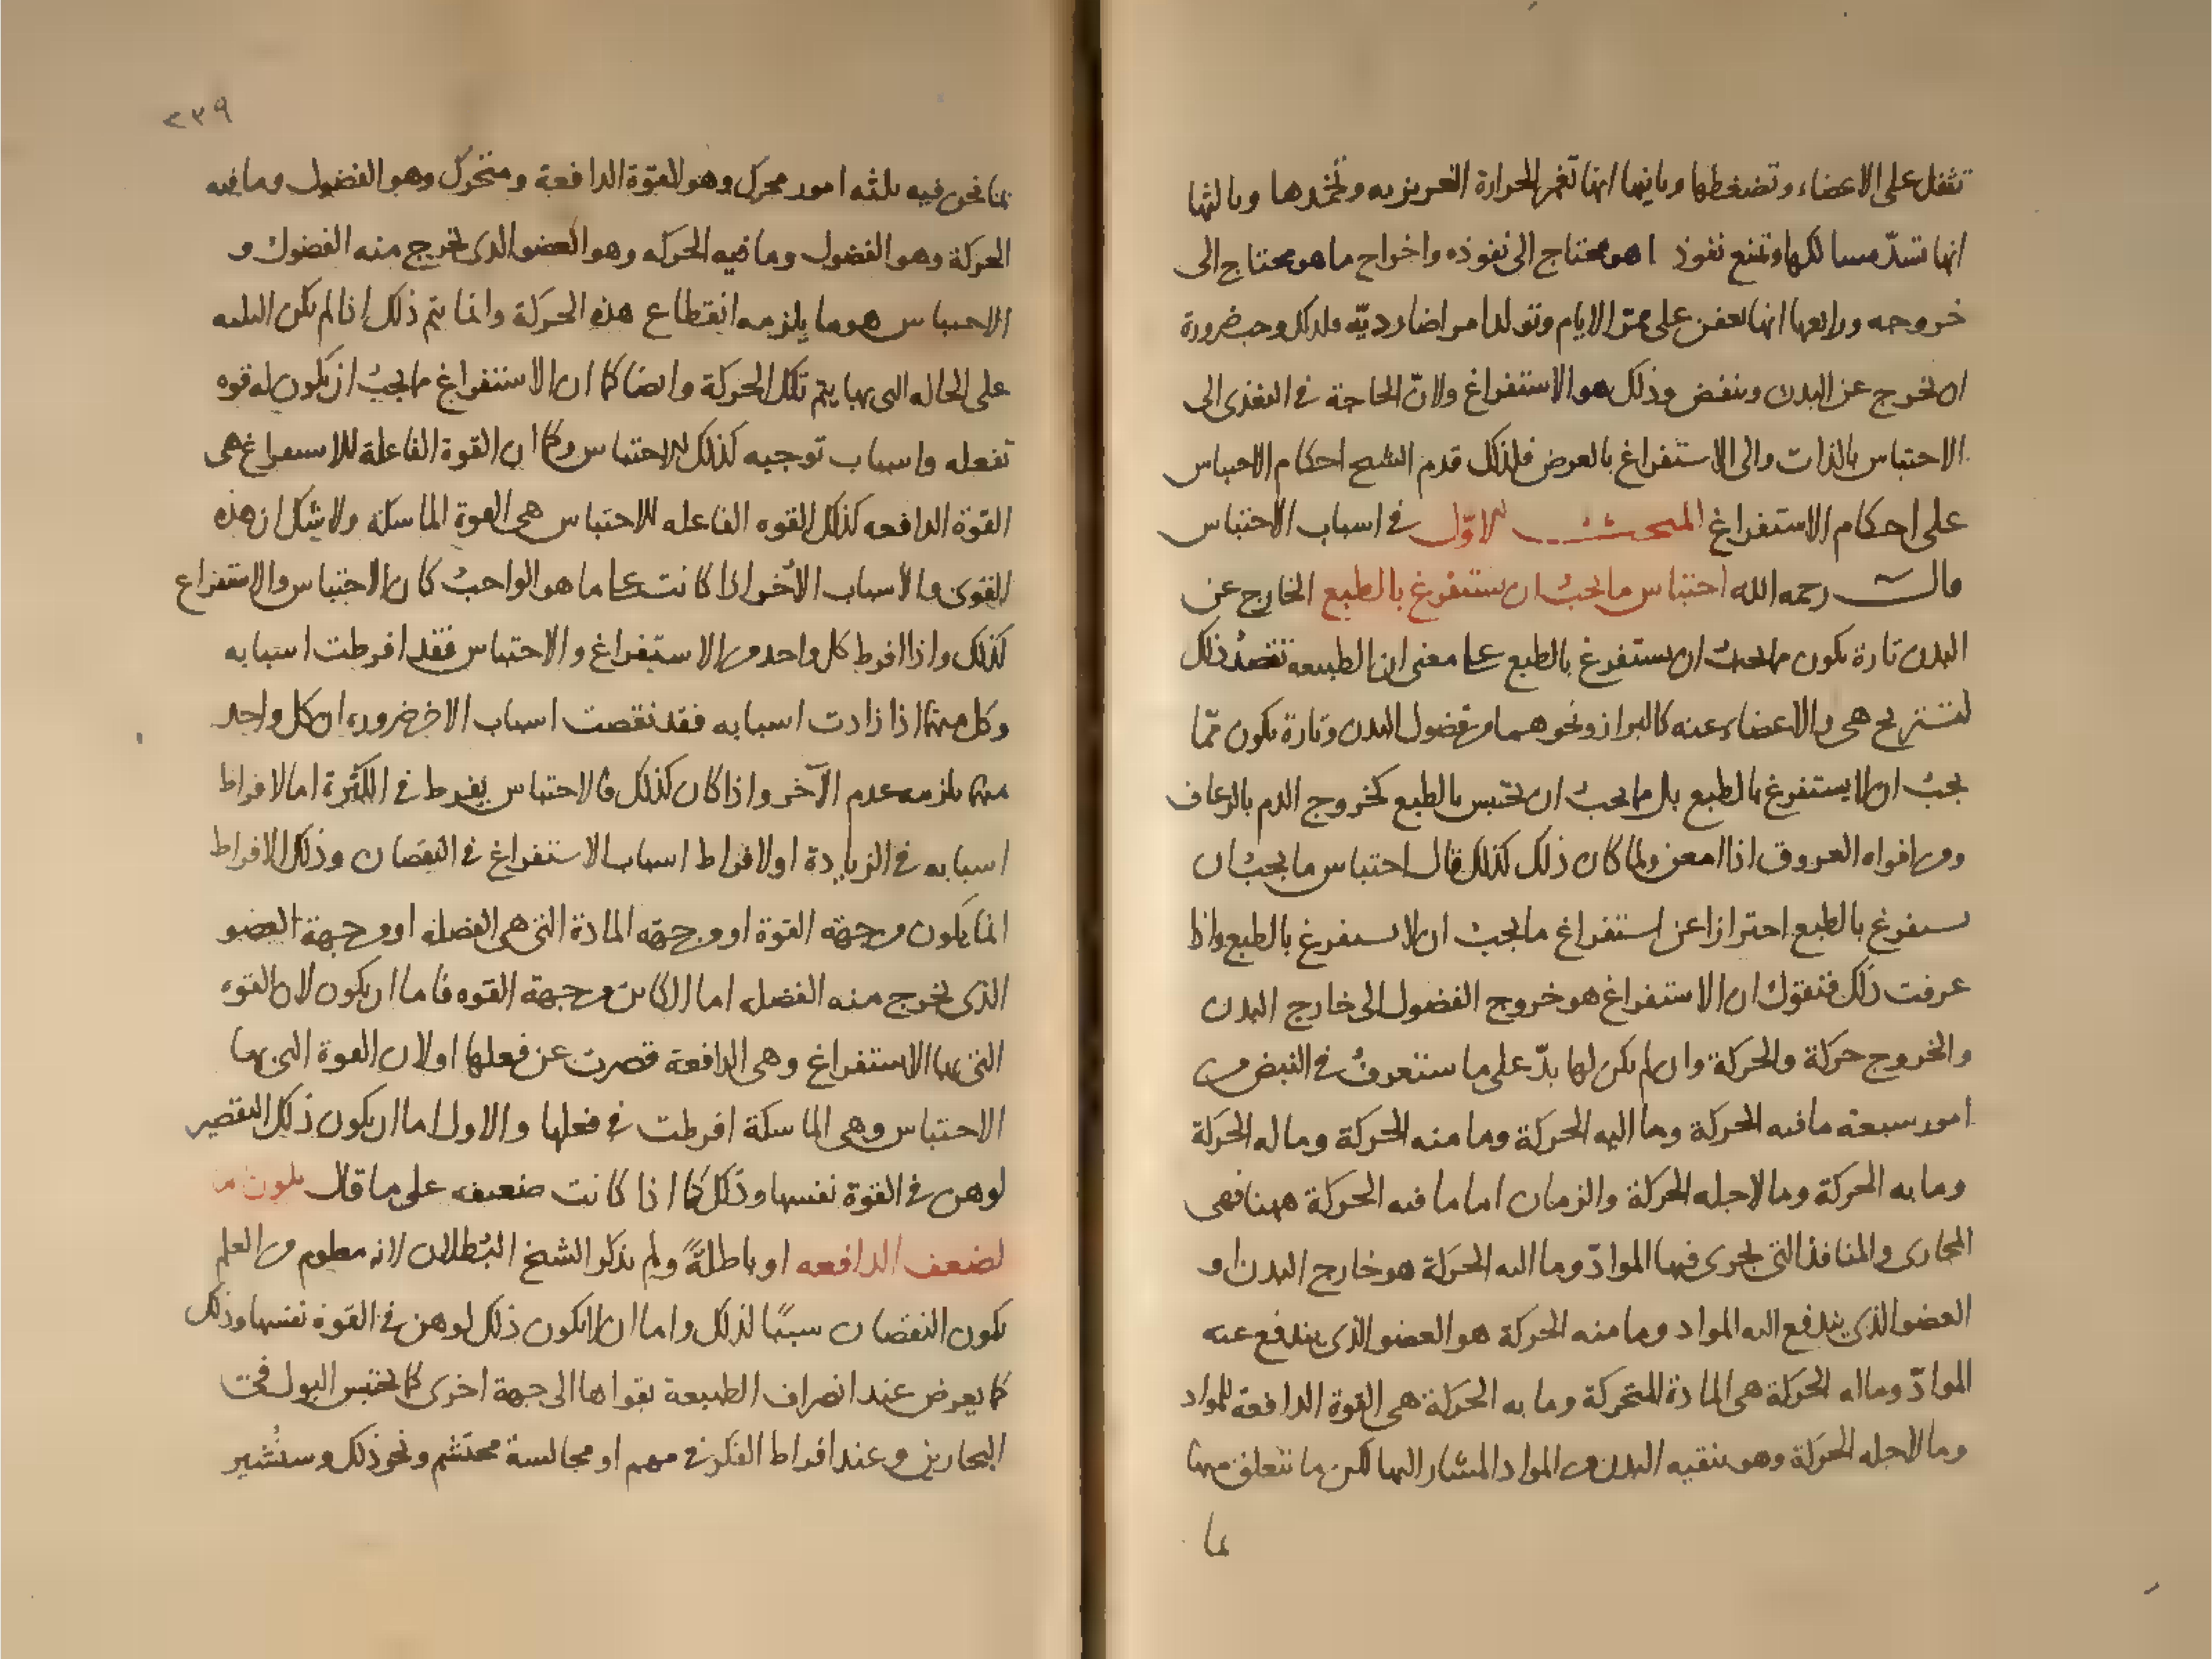 تثقل على الاعضاء وتضغطها وثانيها انها تغمر الحرارة الغريزيه وتخمدها وثالثها
انها تسدّ مسالكها وتمنع نفوذ ما هو محتاج الى نفوذه واخراج ما هو محتاج الى
خروجه ورابعها انها تعفن على ممرّ الايام وتولد امراضا رديّه فلذلك وجب ضرورة
ان تخرج عن البدن وينفض وذلك هو الاستفراغ ولانّ الحاجة في التغذى الى
الاحتباس بالذات والى الاستفراغ بالعرض فلذلك قدم الشيخ احكام الاحتباس
على احكام الاستفراغ المبحث الاوّل في اسباب الاحتباس
قال رحمه الله احتباس ما يجب ان يستفرغ بالطبع الخارج عن
البدن تارة يكون مما يجب ان يستفرغ بالطبع على معنى ان الطبيعه تقصد ذلك
لتستريح هى والاعضاء عنه كالبراز ونحوهما من فضول البدن وتارة يكون ممّا
يجب ان لا يستفرغ بالطبع بل مما يجب ان يحتبس بالطبع كخروج الدم بالرعاف
ومن افواه العروق اذا امعن ولما كان ذلك كذلك قال احتباس ما يجب ان
يستفرغ بالطبع احترازا عن استفراغ ما يجب ان لا يستفرغ بالطبع واذا
عرفت ذلك فنقول ان الاستفراغ هو خروج الفضول الى خارج البدن
والخروج حركة والحركة وان لم يكن لها بدّ على ما ستعرف في النبض من
امور سبعة ما فيه الحركة وما اليه الحركة وما منه الحركة وما له الحركة
وما به الحركة وما لاجله الحركة والزمان اما ما فيه الحركة ههنا فهى
المجارى والمنافذ التي يجرى فيها الموادّ وما اليه الحركة هو خارج البدن او
العضو الذى يندفع اليه المواد وما منه الحركة هو العضو الذى يندفع عنه
الموادّ وما له الحركة هى المادة المتحركة وما به الحركة هى القوة الدافعة للمواد
وما لاجله الحركة وهو تنقيه البدن من المواد المشار اليها لكن ما تتعلق منها
بما
٢٣٩
بما نحن فيه ثلثه امور محرك وهو القوة الدافعة ومتحرك وهو الفضول وما فيه
الحركة وهو الفضول وما فيه الحركه وهو العضو الذى يخرج منه الفضول و
الاحتباس هو ما يلزمه انقطاع هذه الحركة وانما يتم ذلك اذا لم يكن الثلثه
على الحاله التى بها يتم تلك الحركة وايضا كما ان الاستفراغ مما يجب ان يكون له قوه
تفعله واسباب توجبه كذلك الاحتباس وكما ان القوة الفاعلة للاستفراغ هى
القوة الدافعه كذلك القوه الفاعله للاحتباس هى القوة الماسكة ولا شك ان هذه
القوى والاسباب الأخر اذا كانت على ما هو الواجب كان الاحتباس والاستفراغ
كذلك واذا افرط كل واحد من الاستفراغ والاحتباس فقد افرطت اسبابه
وكل منهما اذا زادت اسبابه فقد نقصت اسباب الاخر ضروره ان كل واحد
منهما يلزمه عدم الآخر واذا كان كذلك فالاحتباس يفرط في الكثرة اما لافراط
اسبابه في الزيادة او لافراط اسباب الاستفراغ في النقصان وذلك الافراط
انما يكون من جهة القوة او من جهة المادة التي هى الفضله او من جهة العضو
الذى يخرج منه الفضله اما الكائن من جهة القوه فاما ان يكون لان القوه
التي بها الاستفراغ وهى الدافعة قصرت عن فعلها او لان القوة التى بها
الاحتباس وهى الماسكة افرطت في فعلها والاول اما ان يكون ذلك التقصير
لوهن في القوة نفسها وذلك كما اذا كانت ضعيفه على ما قال يكون اما
لضعف الدافعه او باطلةً ولم يذكر الشيخ البُطلان لانه معلوم من العلم
بكون النقصان سببًا لذلك واما ان لا يكون ذلك لوهن في القوة نفسها وذلك
كما يعرض عند انصراف الطبيعة بقواها الى جهة اخرى كما يحتبس البول في
البحارين وعند افراط الفكر في مهم او مجالسة محتشم ونحو ذلك وسنُشير